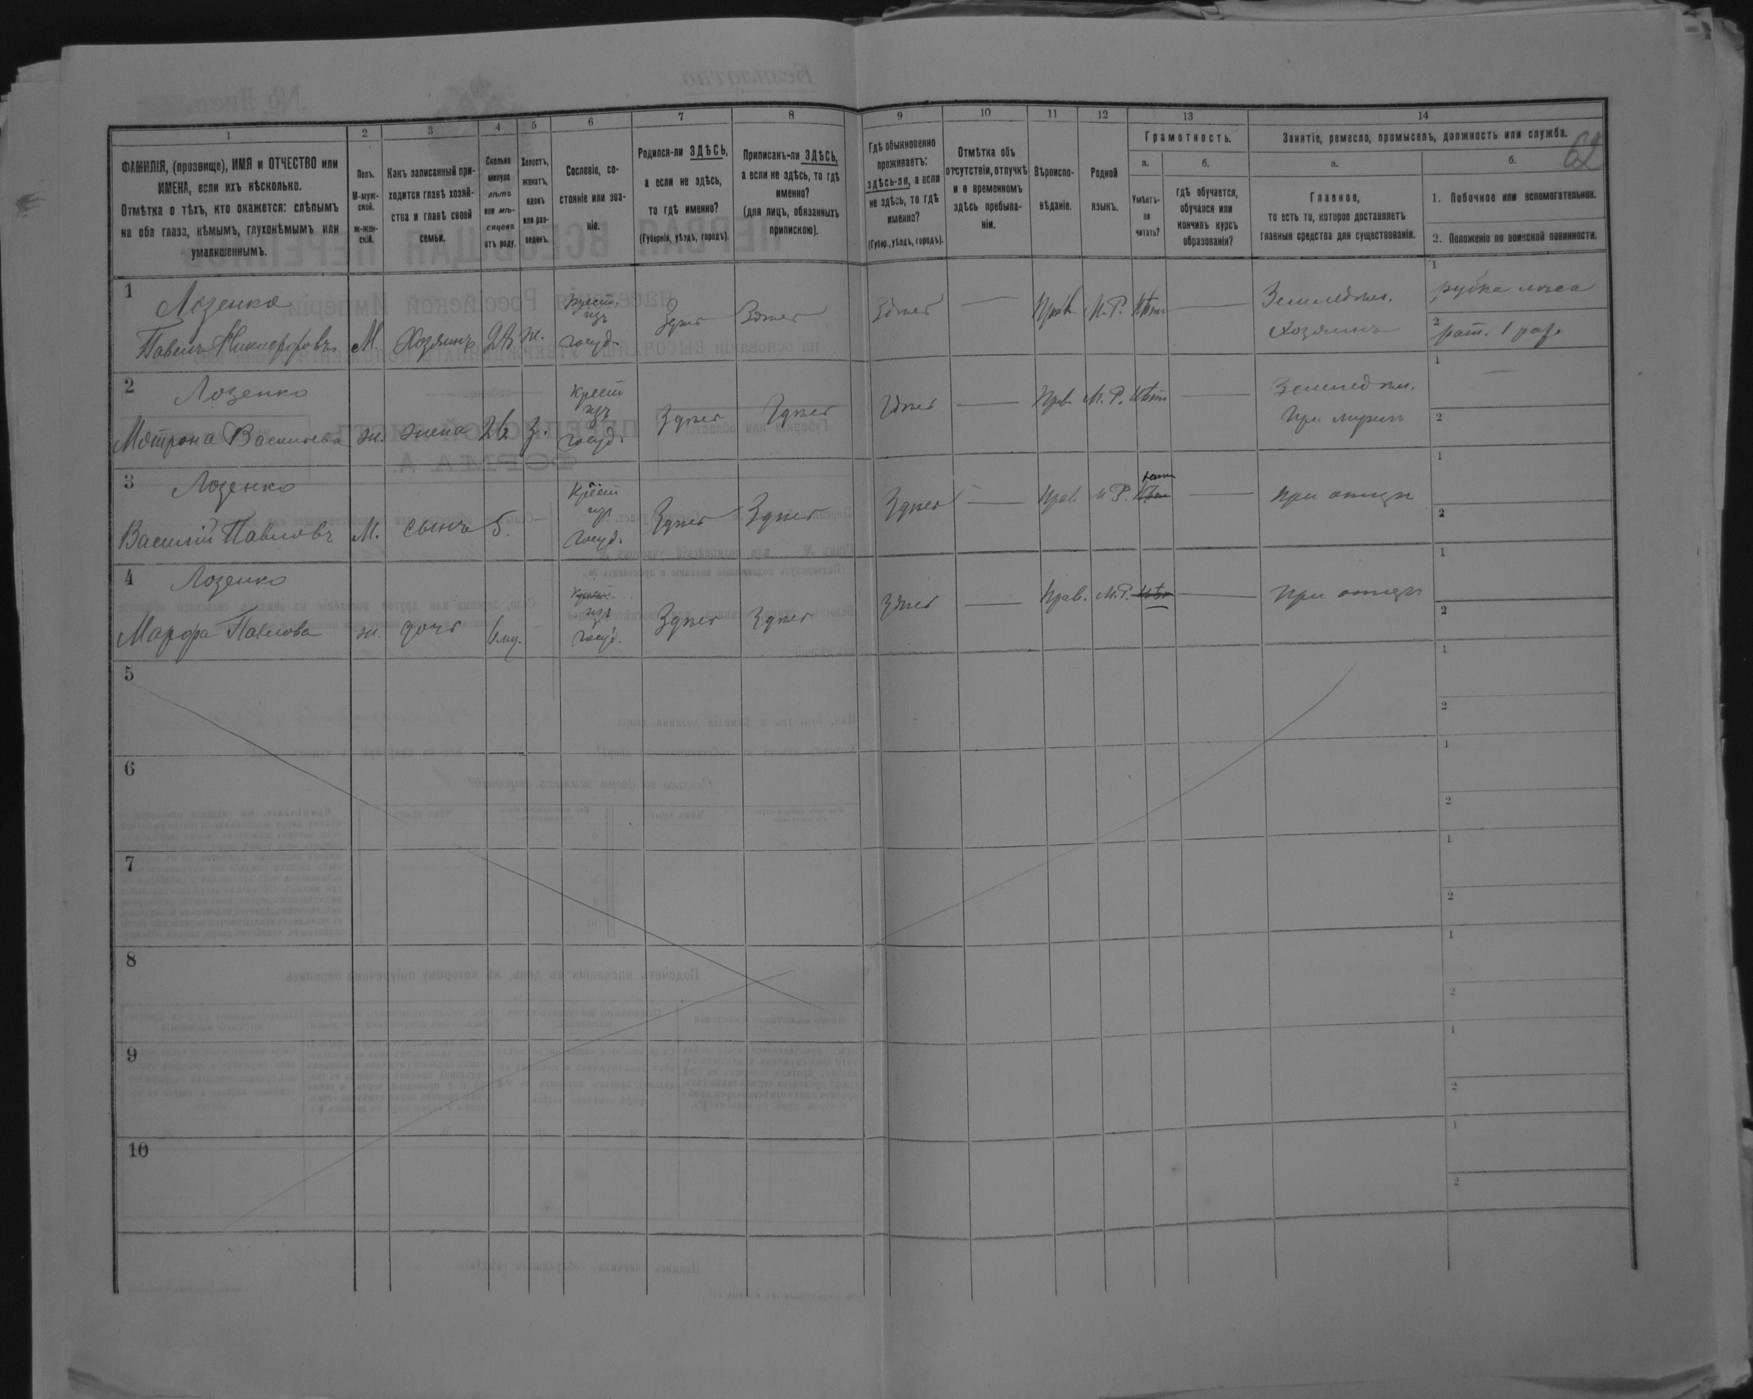 62
1
2
3
4
5
6
7
8
9
10
11
12
13
14
ФАМИЛІЯ, (прозвище), ИМЯ и ОТЧЕСТВО или
ИМЕНА, если ихъ нѣсколько.
Отмѣтка о тѣхъ, кто окажется: слѣпымъ
на оба глаза, нѣмымъ, глухонѣмымъ или
умалишеннымъ.
Полъ.
М-муж-
ской.
Ж-жен-
скій.
Какъ записанный при-
ходится главѣ хозяй-
ства и главѣ своей
семьи.
Сколько
минуло
лѣтъ
или мѣ-
сяцевъ
отъ роду.
Холостъ,
женатъ,
вдовъ
или раз-
веденъ.
Сословіе, со-
стояніе или зва-
ніе.
Родился-ли ЗДѢСЬ,
а если не здѣсь,
то гдѣ именно?
(Губернія, уѣздъ, городъ).
Приписанъ-ли ЗДѢСЬ,
а если не здѣсь, то гдѣ
именно?
(для лицъ, обязанныхъ
припискою).
Гдѣ обыкновенно
проживаетъ:
здѣсь-ли, а если
не здѣсь, то гдѣ
именно?
(Губер., уѣздъ, городъ).
Отмѣтка объ
отсутствіи, отлучкѣ
и о временномъ
здѣсь пребыва-
ніи.
Вѣроиспо-
вѣданіе.
Родной
языкъ.
Грамотность.
а.
Умѣетъ-
ли
читать?
б.
гдѣ обучается,
обучался или
кончилъ курсъ
образованія?
Занятіе, ремесло, промыселъ, должность или служба.
а.
Главное,
то есть то, которое доставляетъ
главныя средства для существованія.
б.
1. Побочное или вспомогательное.
2. Положеніе по воинской повинности.
1
Лозенко
Павелъ Никифоровъ
М.
Хозяинъ
ж.
Крест.
изъ
госуд.
Здѣсь
Здѣсь
Здѣсь
Прав.
М.Р.
Нѣтъ
Земледѣл.
Хозяинъ
1
рубка лѣса
2
рат. 1 раз.
2
Лозенко
Мотрона Васильева
ж.
жена
26
з.
Крест
изъ
госуд.
Здѣсь
Здѣсь
Здѣсь
Прв.
М.Р.
Нѣтъ
Земледѣл.
При мужѣ
1
2
3
Лозенко
Василій Павловъ
М.
сынъ
5.
Крест
изъ
госуд.
Здѣсь
Здѣсь
Здѣсь
Прав.
М.Р.
При отцѣ
1
2
4
Лозенко
Марфа Павлова
ж.
дочь
6 мц.
Крест
изъ
госуд.
Здѣсь
Здѣсь
Здѣсь
Прав.
М.Р.
Нѣтъ
При отцѣ
1
2
5
1
2
6
1
2
7
1
2
8
1
2
9
1
2
10
1
2